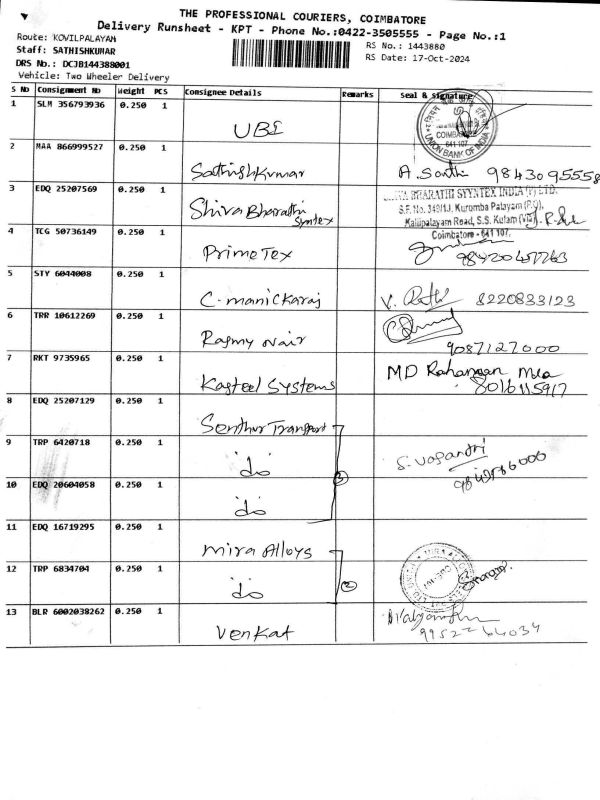 THE PROFESSIONAL COURIERS, COIMBATORE
Delivery Runsheet - KPT - Phone No.:0422-3505555 - Page No.:1
Route: KOVILPALAYAM
RS No.: 1443880
Staff: SATHISHKUMAR
RS Date: 17-Oct-2024
DRS No.: DCJB144388001
Vehicle: Two Wheeler Delivery
S No Consignment No Weight PCS Consignee Details Remarks Seal & Signature
1 SLM 356793936 0.250 1 UBI
COIMBATORE
641 107
UNION BANK OF INDIA
2 MAA 866999527 0.250 1 Sathishkumar A. Santhi 9843095558
3 EDQ 25207569 0.250 1 Shiva Bharathi Syntex
SHIVA BHARATHI SYYNTEX INDIA (P) LTD.
S.F. No. 349/1J, Kurumba Palayam (P.O),
Kalipalayam Road, S.S. Kulam (Via),
Coimbatore - 641 107.
4 TCG 50736149 0.250 1 PrimeTex
5 STY 6044008 0.250 1 C. manickaraj 8220833123
6 TRR 10612269 0.250 1 Rajmy Nair 9087127000
7 RKT 9735965 0.250 1 Kagteel Systems MD Rahaman Mia
8016115917
8 EDQ 25207129 0.250 1 Senthur Transport
9 TRP 6420718 0.250 1 do 3
10 EDQ 20604058 0.250 1 do
11 EDQ 16719295 0.250 1 Mira Alloys
12 TRP 6834704 0.250 1 do 2
13 BLR 6002038262 0.250 1 Venkat